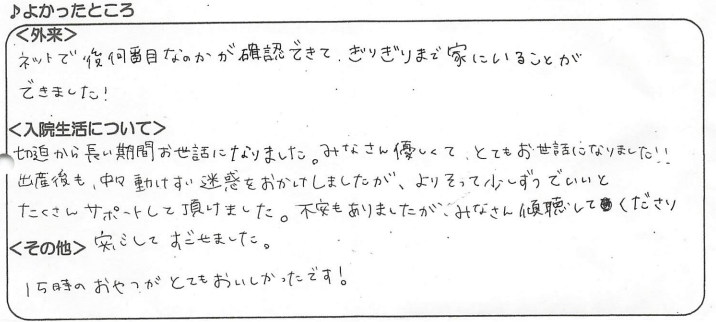 ♪よかったところ
<外来>
ネットで後何番目なのかが確認できて、ぎりぎりまで家にいることが
できました!
<入院生活について>
切迫から長い期間お世話になりました。みなさん優しくて、とてもお世話になりました!!
出産後も、中々動けずい迷惑をおかけしましたが、よりそって少しずつでいいと
たくさんサポートして頂けました。不安もありましたが、みなさん傾聴してくださり
<その他> 安心してすごせました。
15時のおやつがとてもおいしかったです!